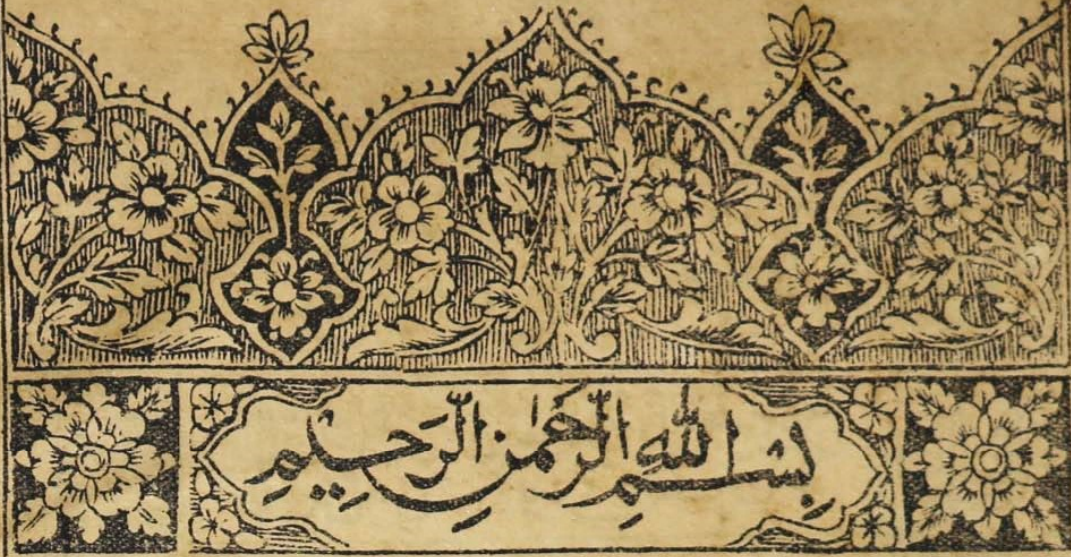 بِسْمِ اللهِ الرَّحْمٰنِ الرَّحِيْمِ